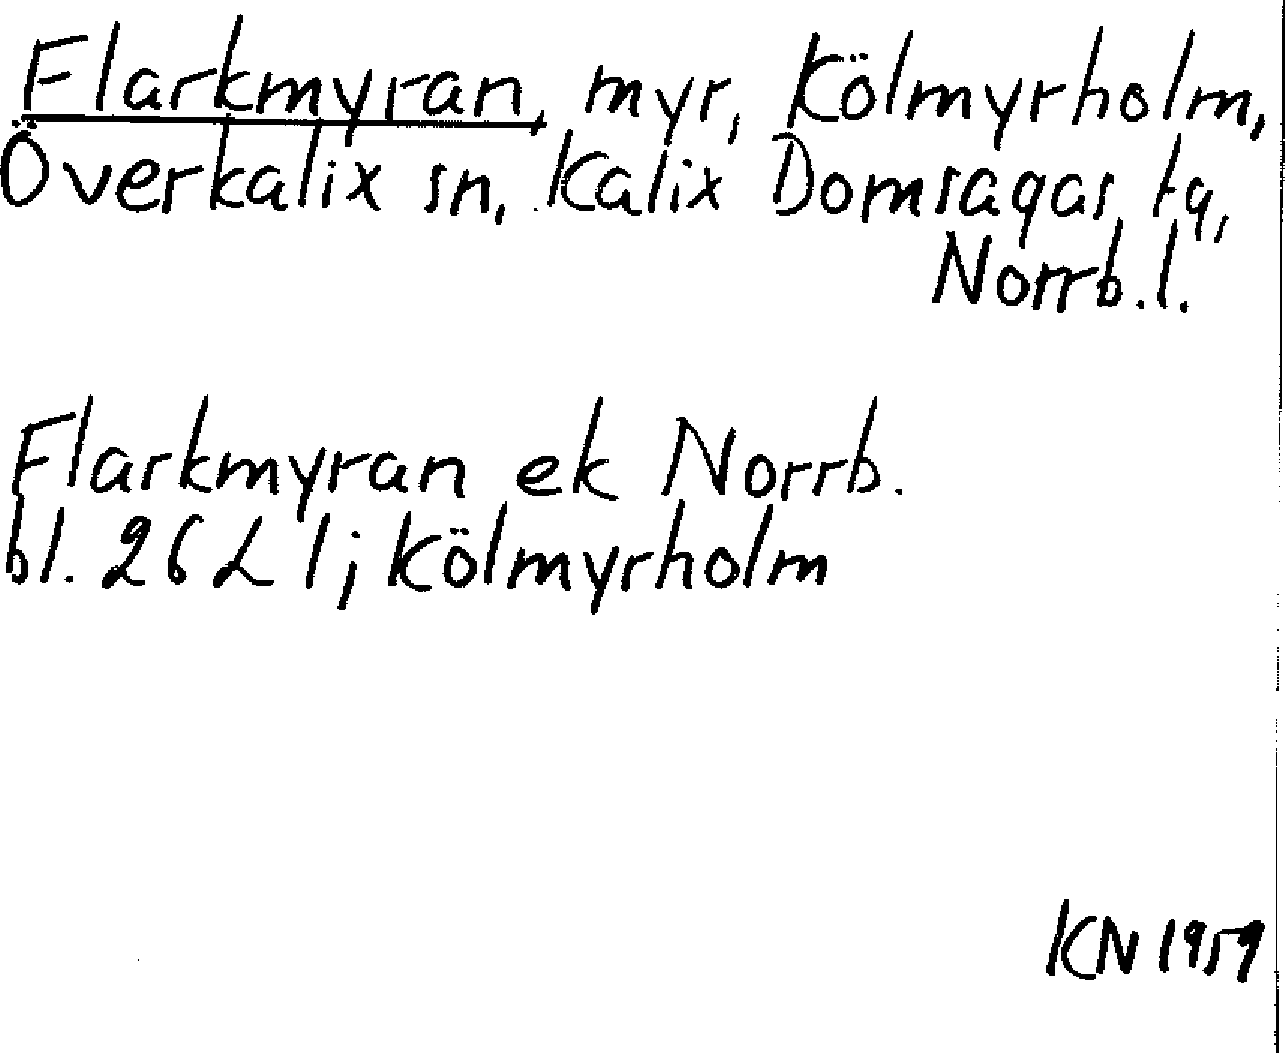 Flarkmyran, myr, Kölmyrholm,
Överkalix sn, Kalix Domsagas tg,
Norrb. l.
Flarkmyran ek Norrb.
bl. 26 L 1; Kölmyrholm
KN 1959